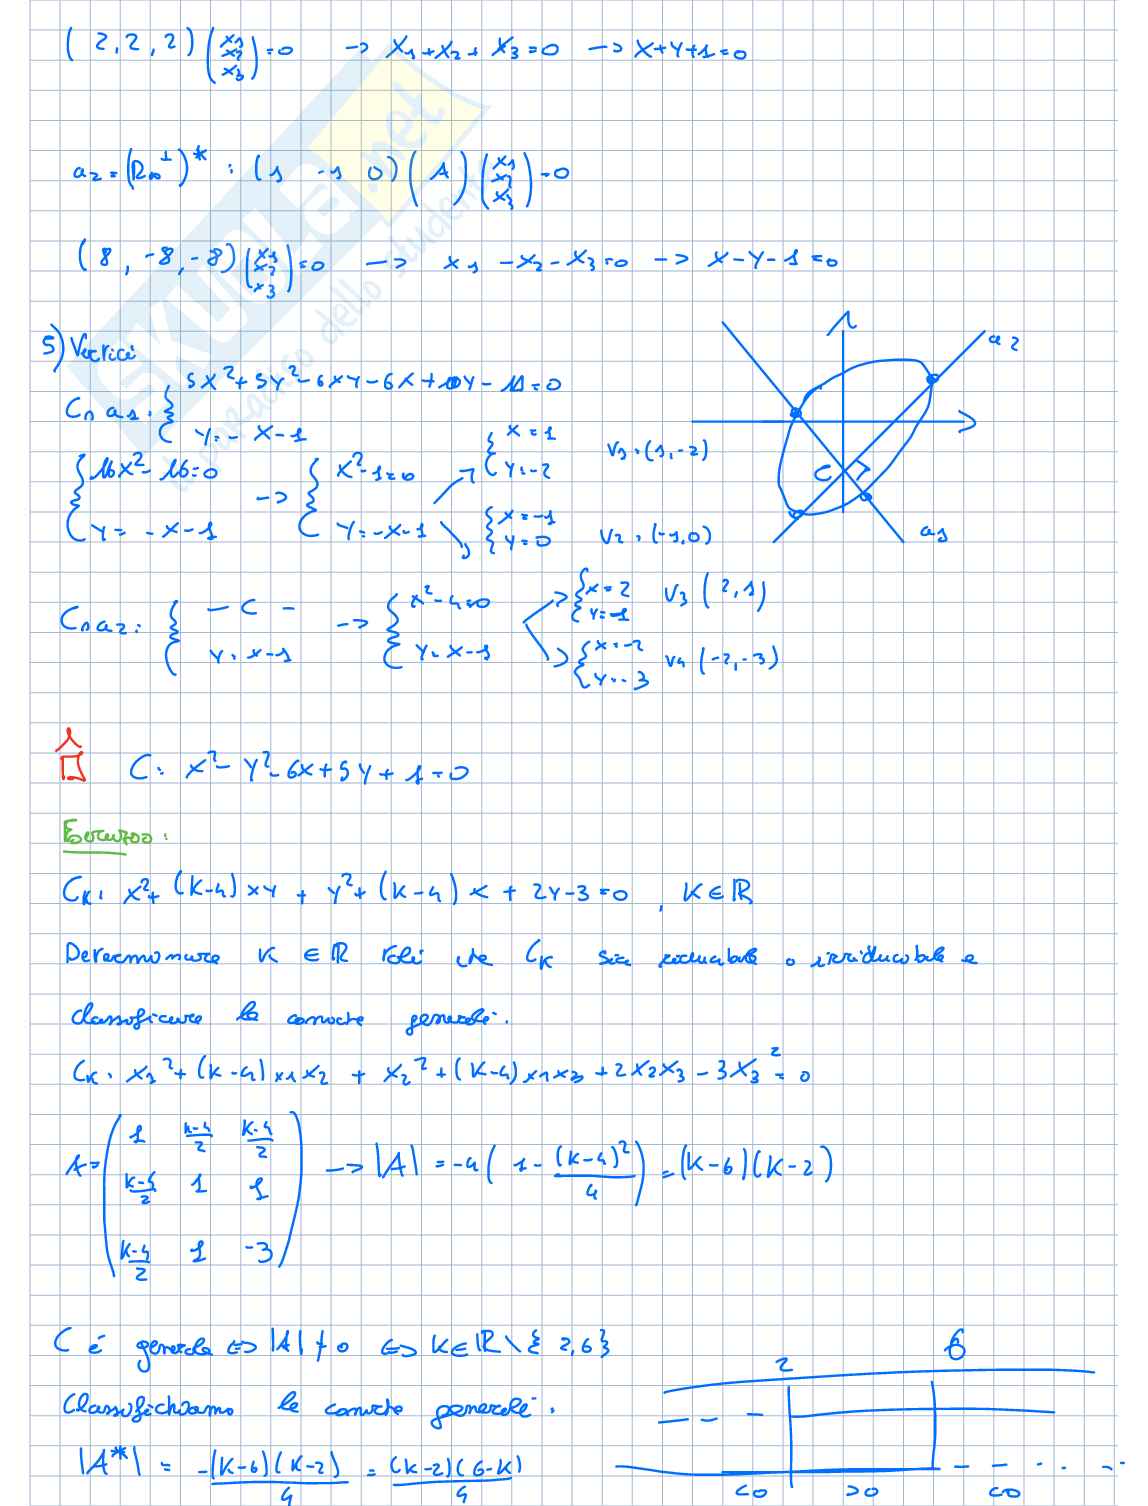 (2, 2, 2) (x1 x2 x3) = 0 → x1 + x2 + x3 = 0 → x + y + 1 = 0
a2 = (R∞^⊥)* : (1 -1 0) (A) (x1 x2 x3) = 0
(8, -8, -8) (x1 x2 x3) = 0 → x1 - x2 - x3 = 0 → x - y - 1 = 0
5) Vertici
C ∩ a1 : { 5x² + 5y² - 6xy - 6x + 10y - 11 = 0
y = -x-1
{ 16x² - 16 = 0 → { x² - 1 = 0 { x = 1
y = -x-1 y = -x-1 y = -2 V1 = (1, -2)
{ x = -1
y = 0 V2 = (-1, 0)
a2
C
a1
C ∩ a2 : { — C — → { x² - 4 = 0 { x = 2 V3 (2, 1)
y = x-1 y = x-1 y = 1
{ x = -2 V4 (-2, -3)
y = -3
C: x² - y² - 6x + 5y + 1 = 0
Esercizio:
CK: x² + (K-4)xy + y² + (K-4)x + 2y - 3 = 0, K ∈ ℝ
Determinare K ∈ ℝ tali che CK sia riducibile o irriducibile e
classificare le coniche generali.
CK: x1² + (K-4)x1x2 + x2² + (K-4)x1x3 + 2x2x3 - 3x3² = 0
A = ( 1 (K-4)/2 (K-4)/2
(K-4)/2 1 1
(K-4)/2 1 -3 ) → |A| = -4(1 - (K-4)²/4) = (K-6)(K-2)
C é generale ⇔ |A| ≠ 0 ⇔ K ∈ ℝ \ {2,6}
Classifichiamo le coniche generali.
|A*| = -(K-6)(K-2)/4 = (K-2)(6-K)/4
2 6
<0 >0 <0
SKUOLA.net